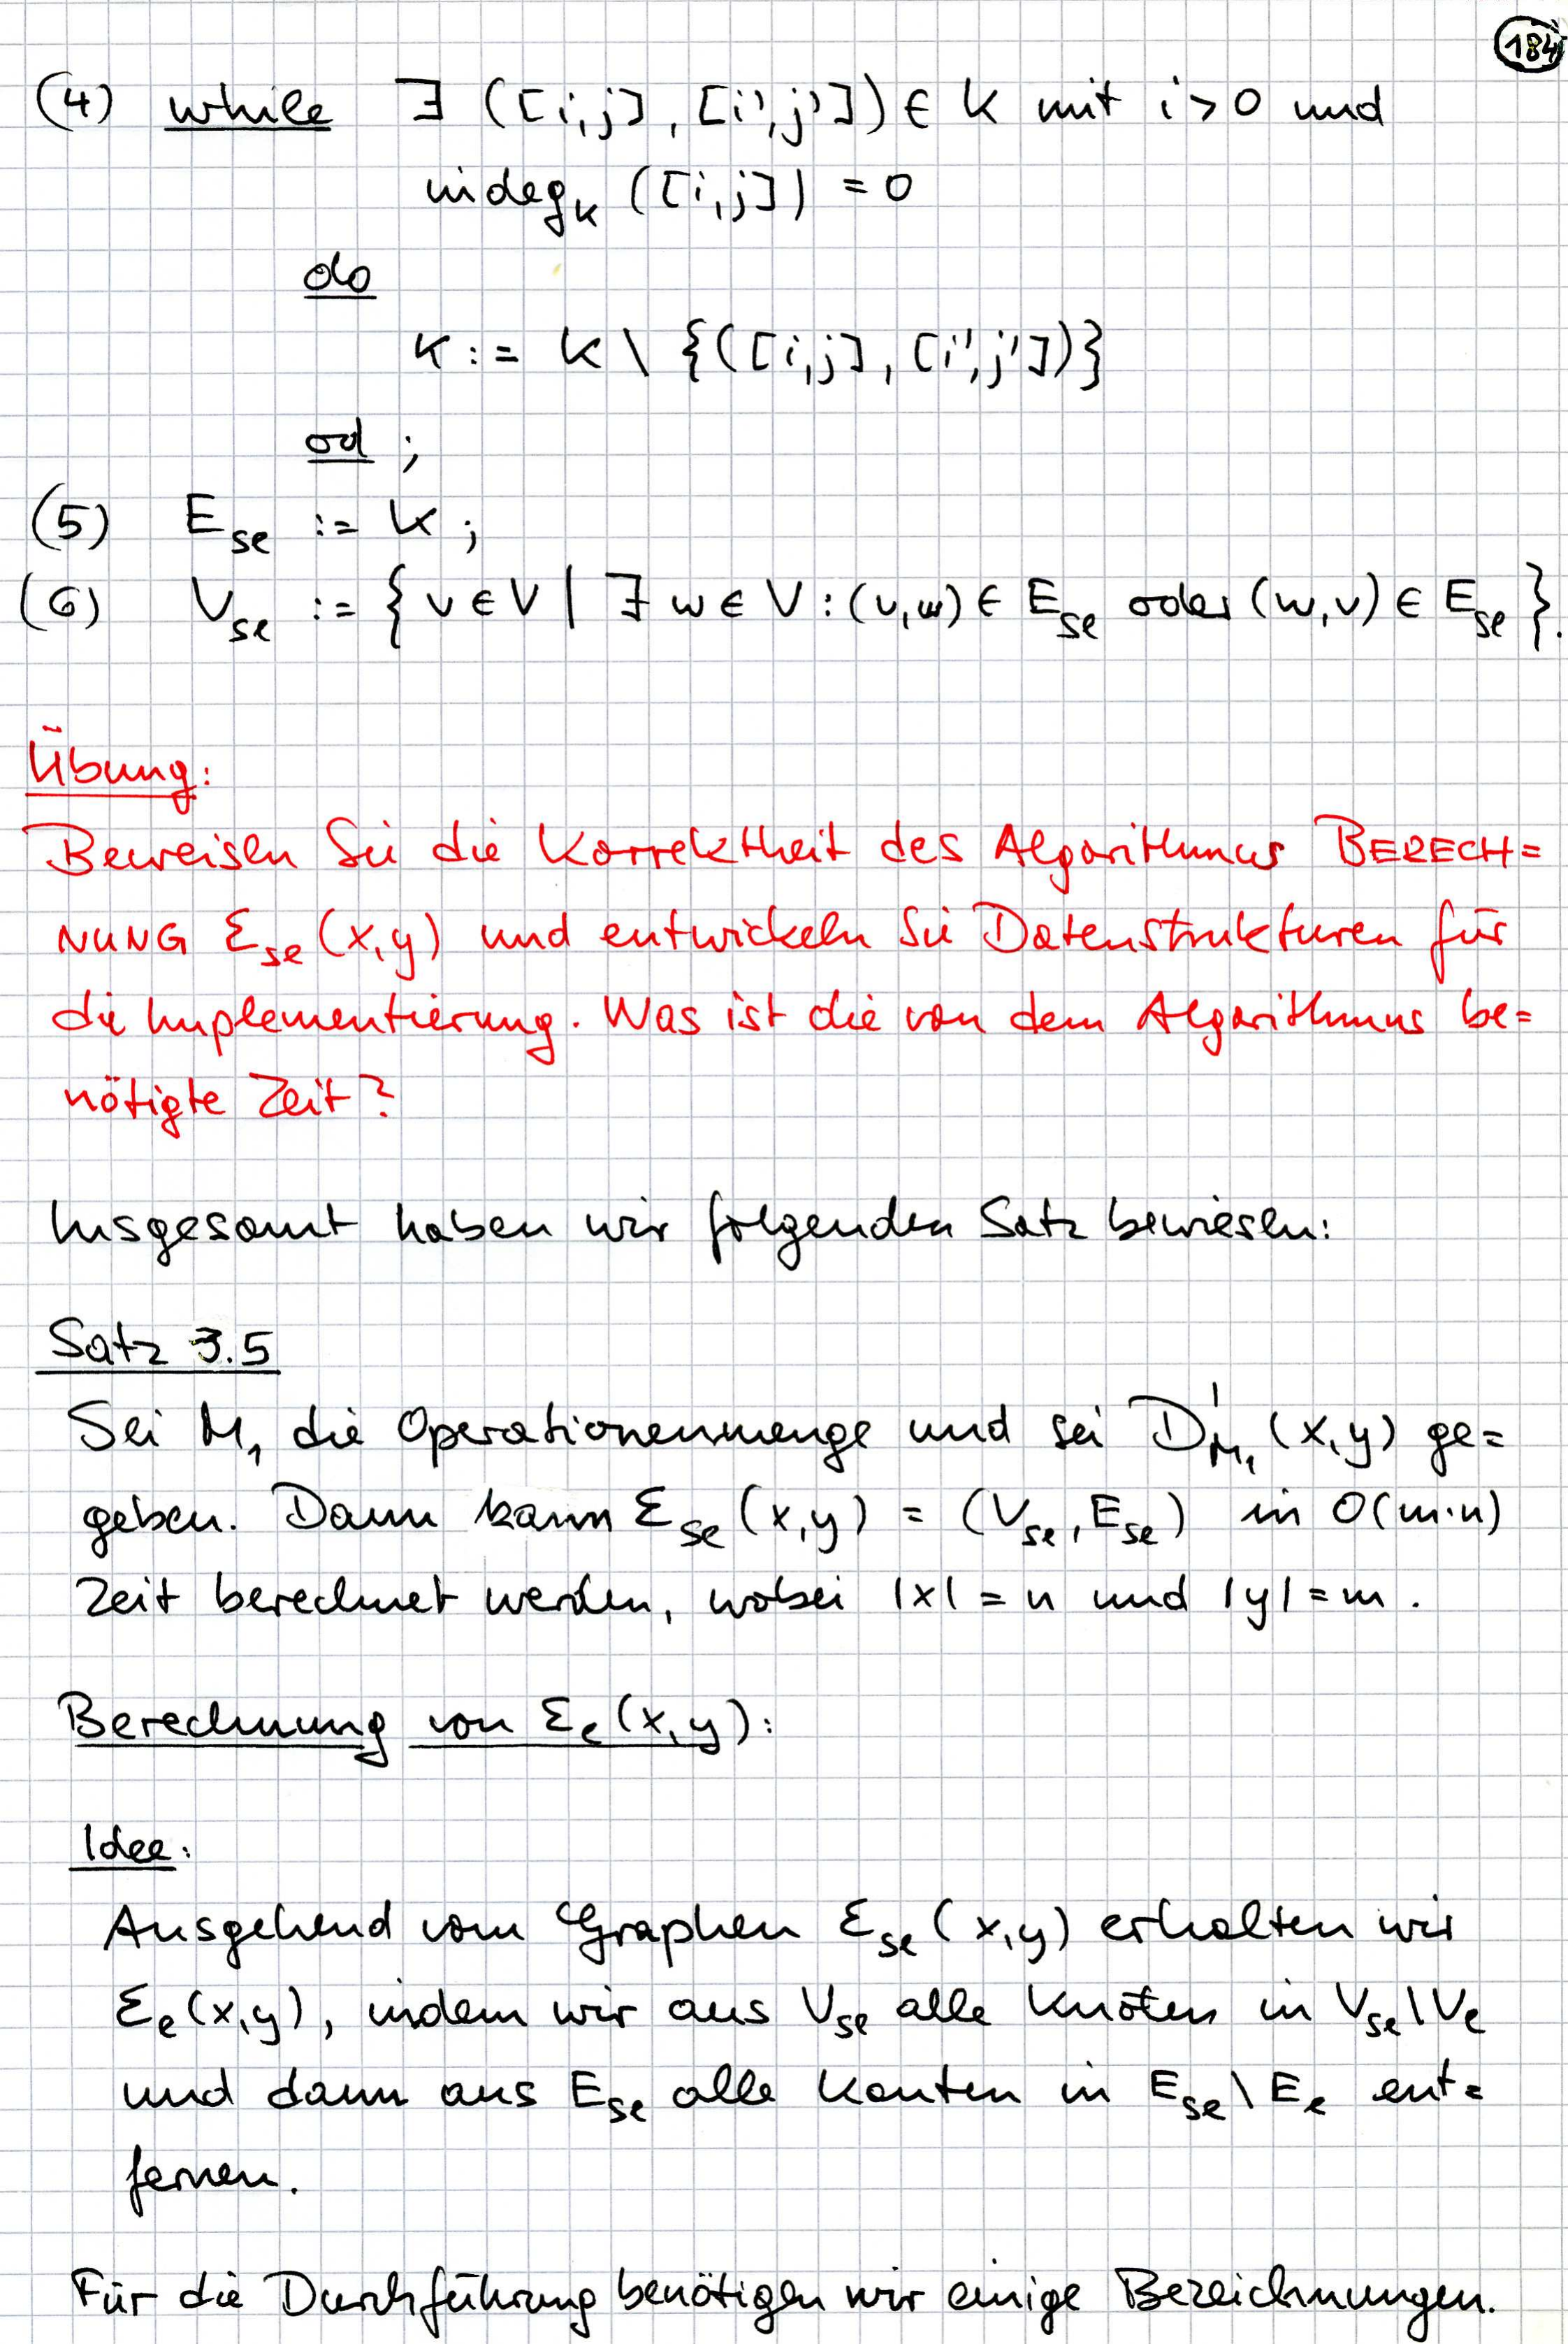 184
(4) while ∃ ([i,j], [i',j']) ∈ K mit i > 0 und
indeg_K ([i,j]) = 0
do
K := K \ {([i,j], [i',j'])}
od ;
(5) E_se := K ;
(6) V_se := { v ∈ V | ∃ w ∈ V : (v,w) ∈ E_se oder (w,v) ∈ E_se }.
Übung:
Beweisen Sie die Korrektheit des Algorithmus BERECH=
NUNG Ɛ_se (x,y) und entwickeln Sie Datenstrukturen für
die Implementierung. Was ist die von dem Algorithmus be=
nötigte Zeit?
Insgesamt haben wir folgenden Satz bewiesen:
Satz 3.5
Sei M₁ die Operationenmenge und sei D'_M₁ (x,y) ge=
geben. Dann kann Ɛ_se (x,y) = (V_se, E_se) in O(m·n)
Zeit berechnet werden, wobei |x| = n und |y| = m .
Berechnung von Ɛ_e (x,y):
Idee:
Ausgehend vom Graphen Ɛ_se (x,y) erhalten wir
Ɛ_e (x,y), indem wir aus V_se alle Knoten in V_se \ V_e
und dann aus E_se alle Kanten in E_se \ E_e ent=
fernen.
Für die Durchführung benötigen wir einige Bezeichnungen.